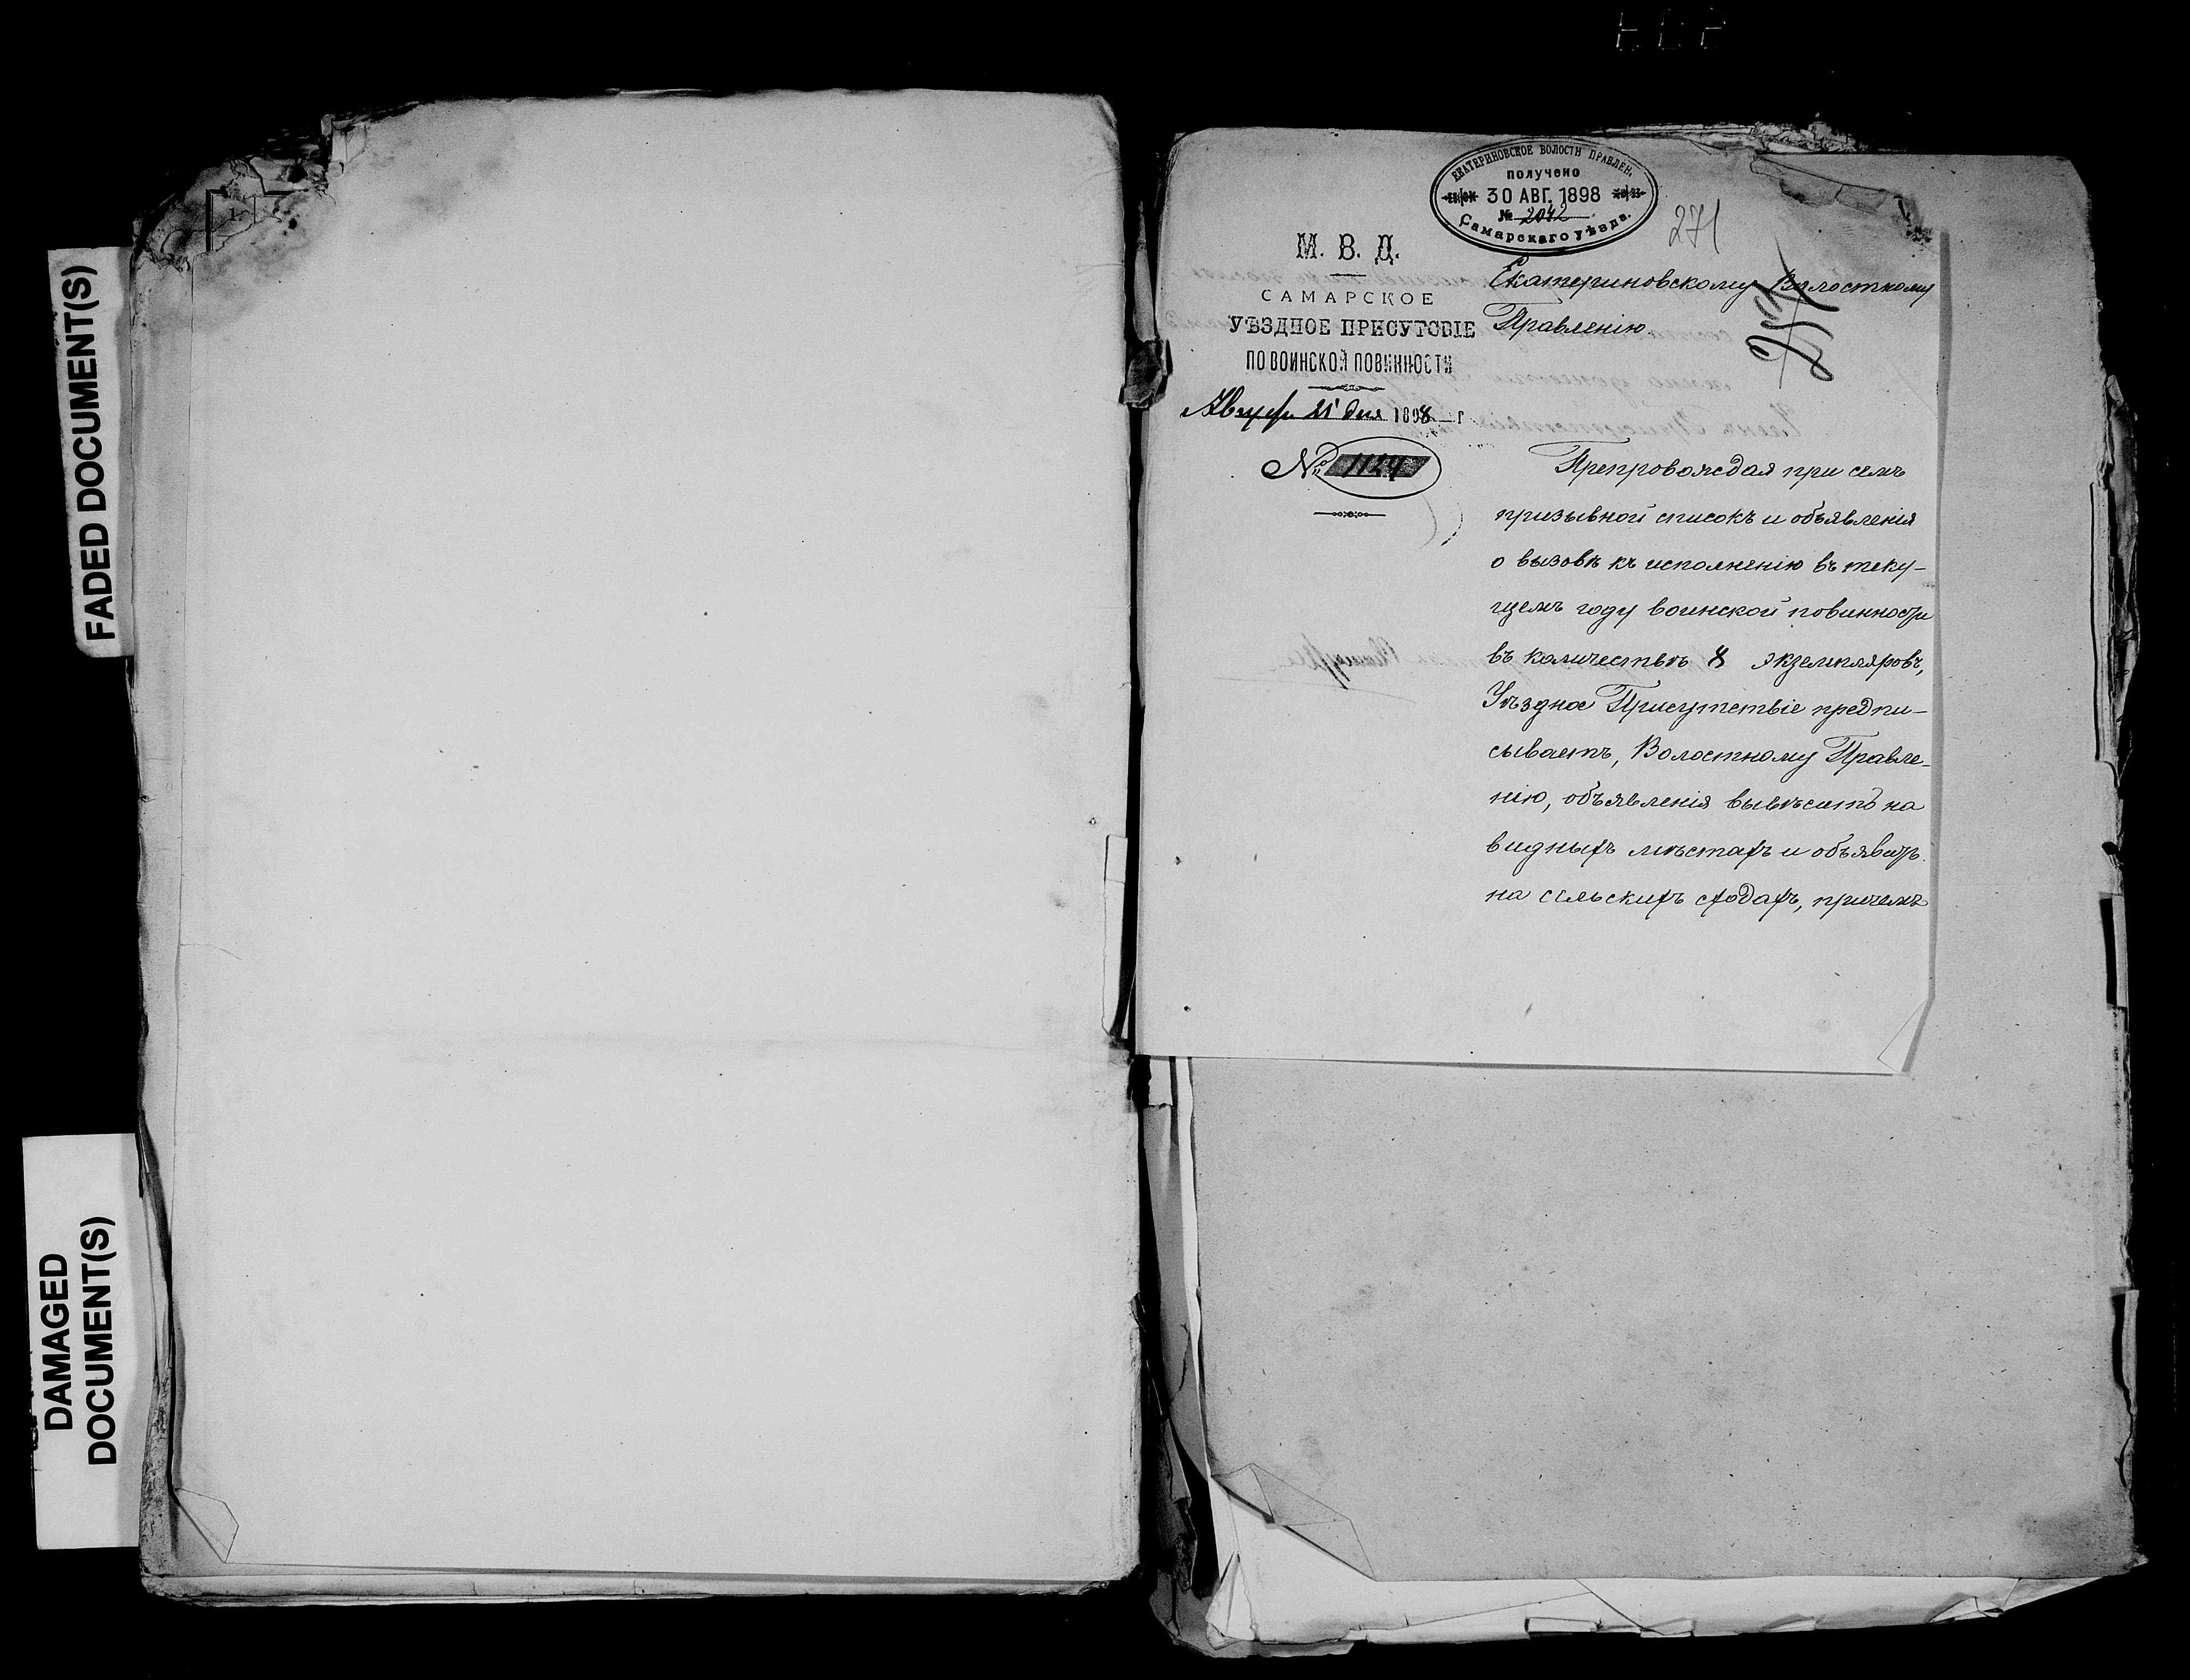 FADED DOCUMENT(S)
DAMAGED
DOCUMENT(S)
ЕКАТЕРИНОВСКОЕ ВОЛОСТН ПРАВЛЕН.
получено
30 АВГ. 1898
№ 2042
Самарскаго уѣзда.
271
М. В. Д.
САМАРСКОЕ
УѢЗДНОЕ ПРИСУТСВІЕ
ПО ВОИНСКОЙ ПОВИННОСТИ
Августа 21 дня 1898 г
№ 1124
Екатериновскому Волостному
Правленію.
Препровождая при семъ
призывной списокъ и объявленія
о вызовѣ къ исполненію въ теку-
щемъ году воинской повинности
въ количествѣ 8 экземпляровъ,
Уѣздное Присутствіе предпи-
сываетъ, Волостному Правле-
нію, объявленія вывѣсить на
видныхъ мѣстахъ и объявить
на сельскихъ сходахъ, причемъ